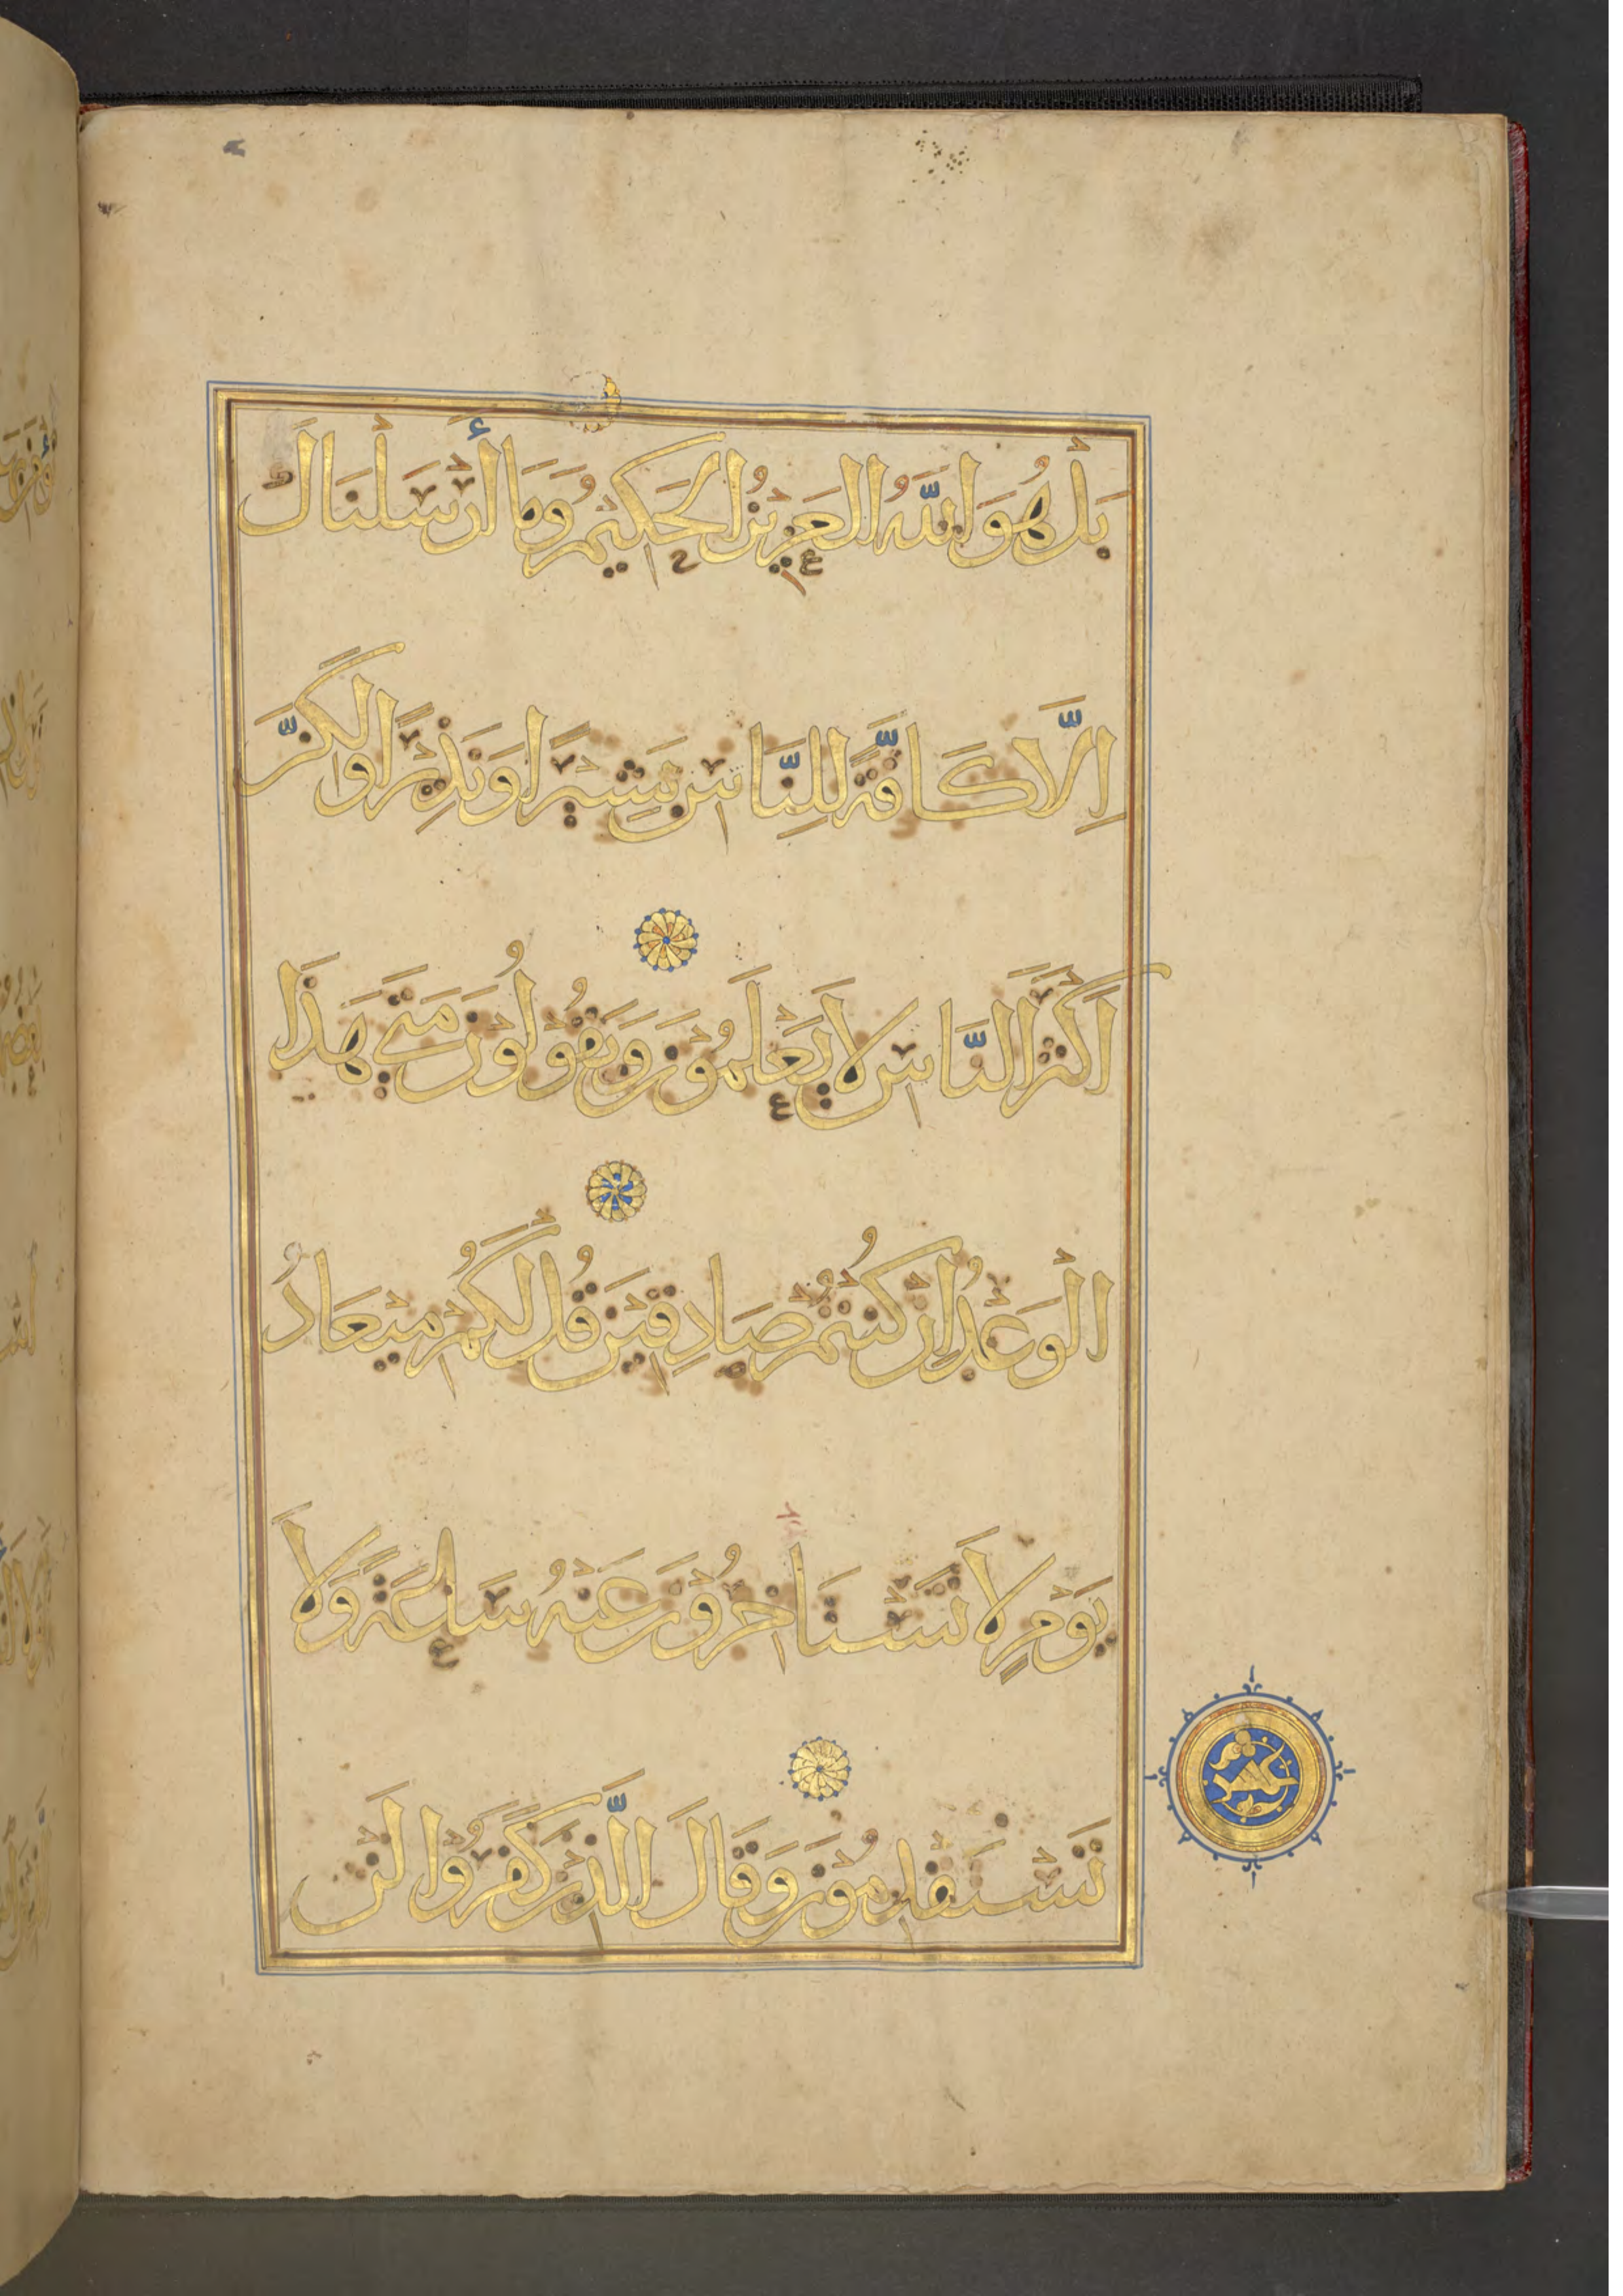 بَلْ هُوَ اللّٰهُ الْعَزِيزُ الْحَكِيمُ وَمَا أَرْسَلْنَاكَ
اِلَّا كَافَّةً لِلنَّاسِ بَشِيْرًا وَنَذِيْرًا وَلٰكِنَّ
اَكْثَرَ النَّاسِ لَا يَعْلَمُوْنَ وَيَقُوْلُوْنَ مَتَى هَذَا
الْوَعْدُ اِنْ كُنْتُمْ صَادِقِيْنَ قُلْ لَكُمْ مِيْعَادُ
يَوْمٍ لَا تَسْتَاخِرُوْنَ عَنْهُ سَاعَةً وَلَا
تَسْتَقْدِمُوْنَ وَقَالَ الَّذِيْنَ كَفَرُوْا لَنْ